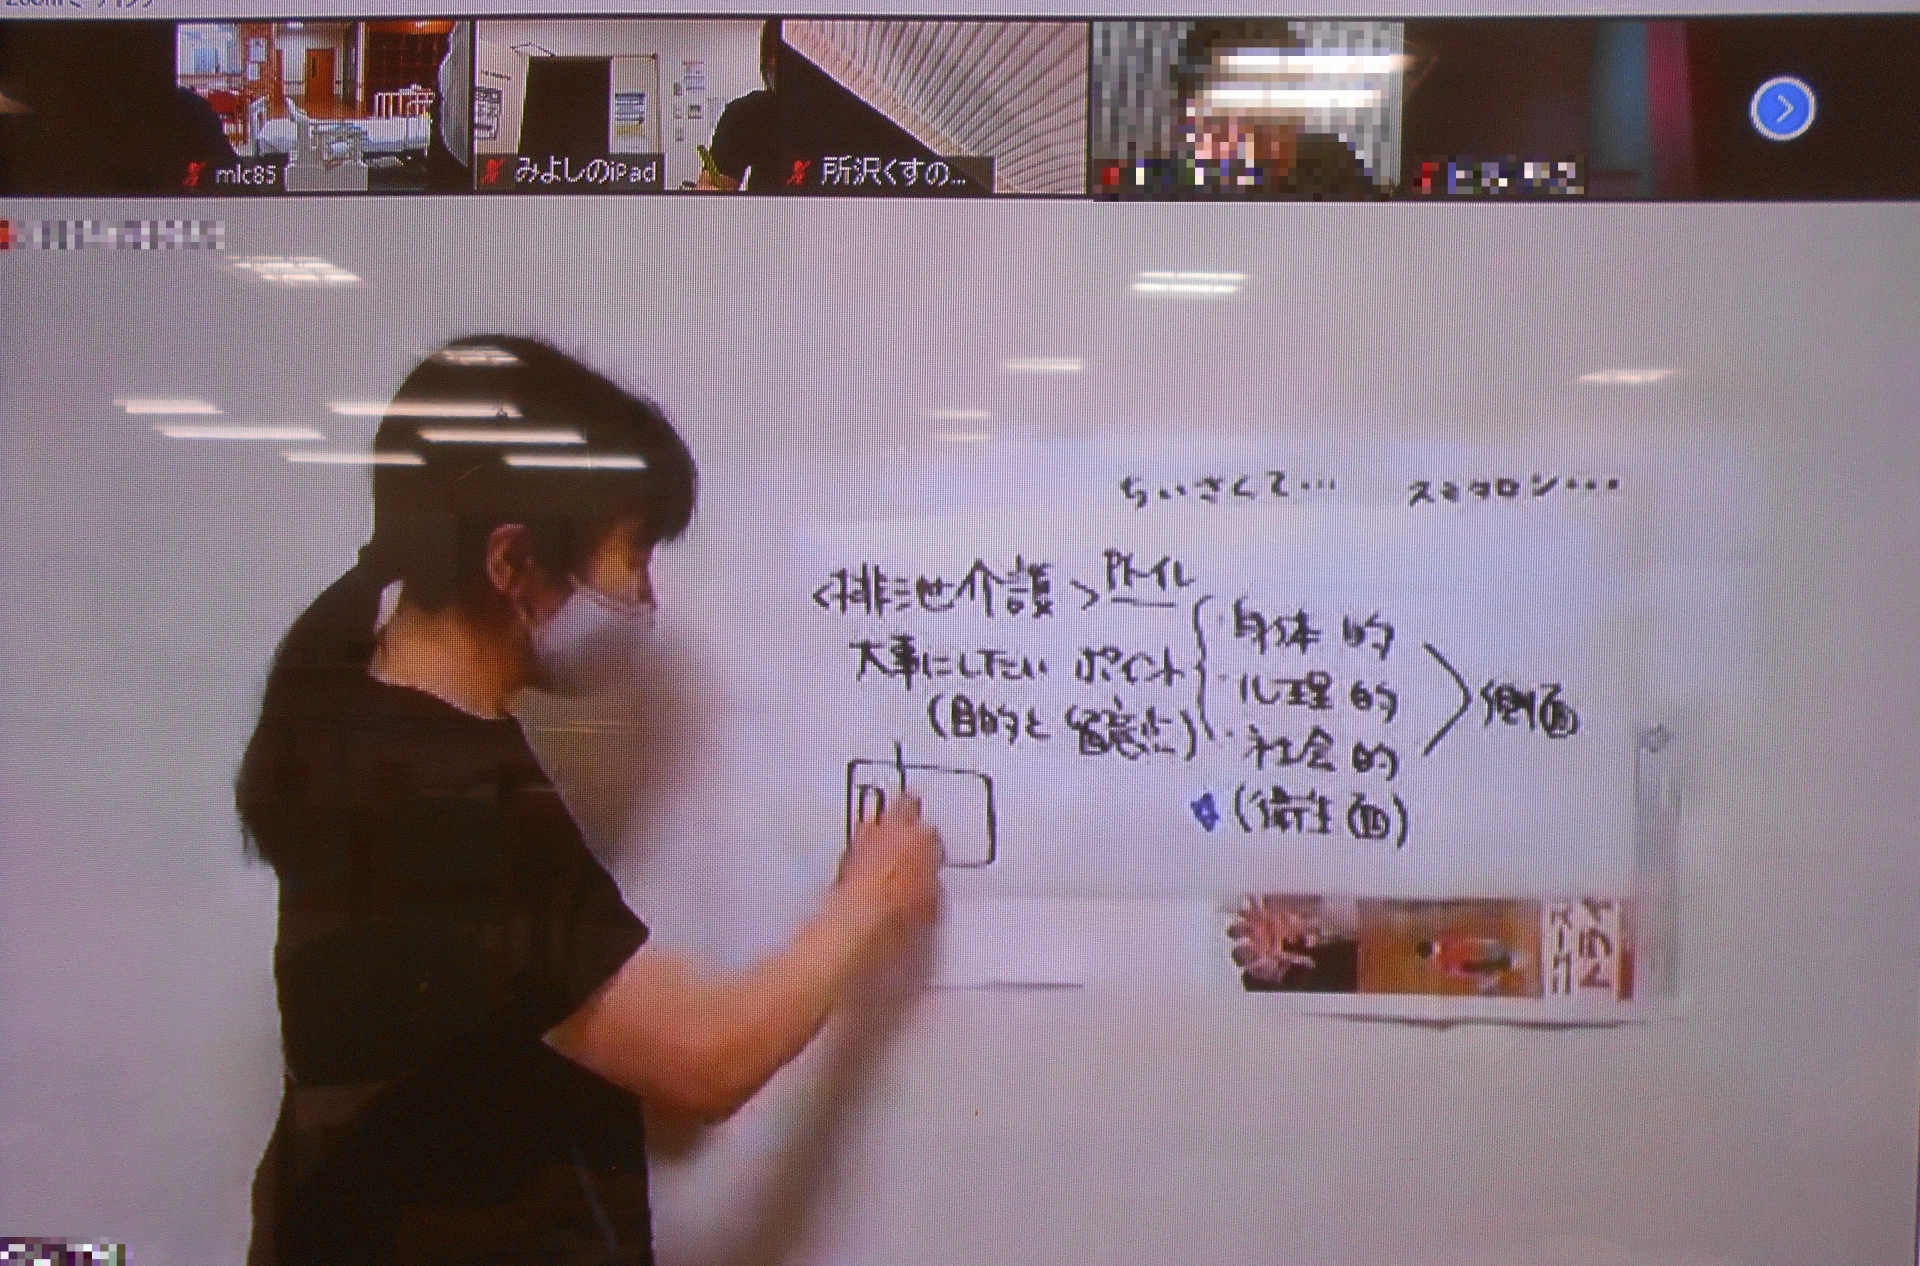 Zoomミーティング
mlc85
みよしのiPad
所沢くすの...
ちいさくて… スミマロン…
<排泄介護> Pトイレ
大事にしたい ポイント
(目的と留意点)
・身体的
・心理的
・社会的
側面
(衛生面)